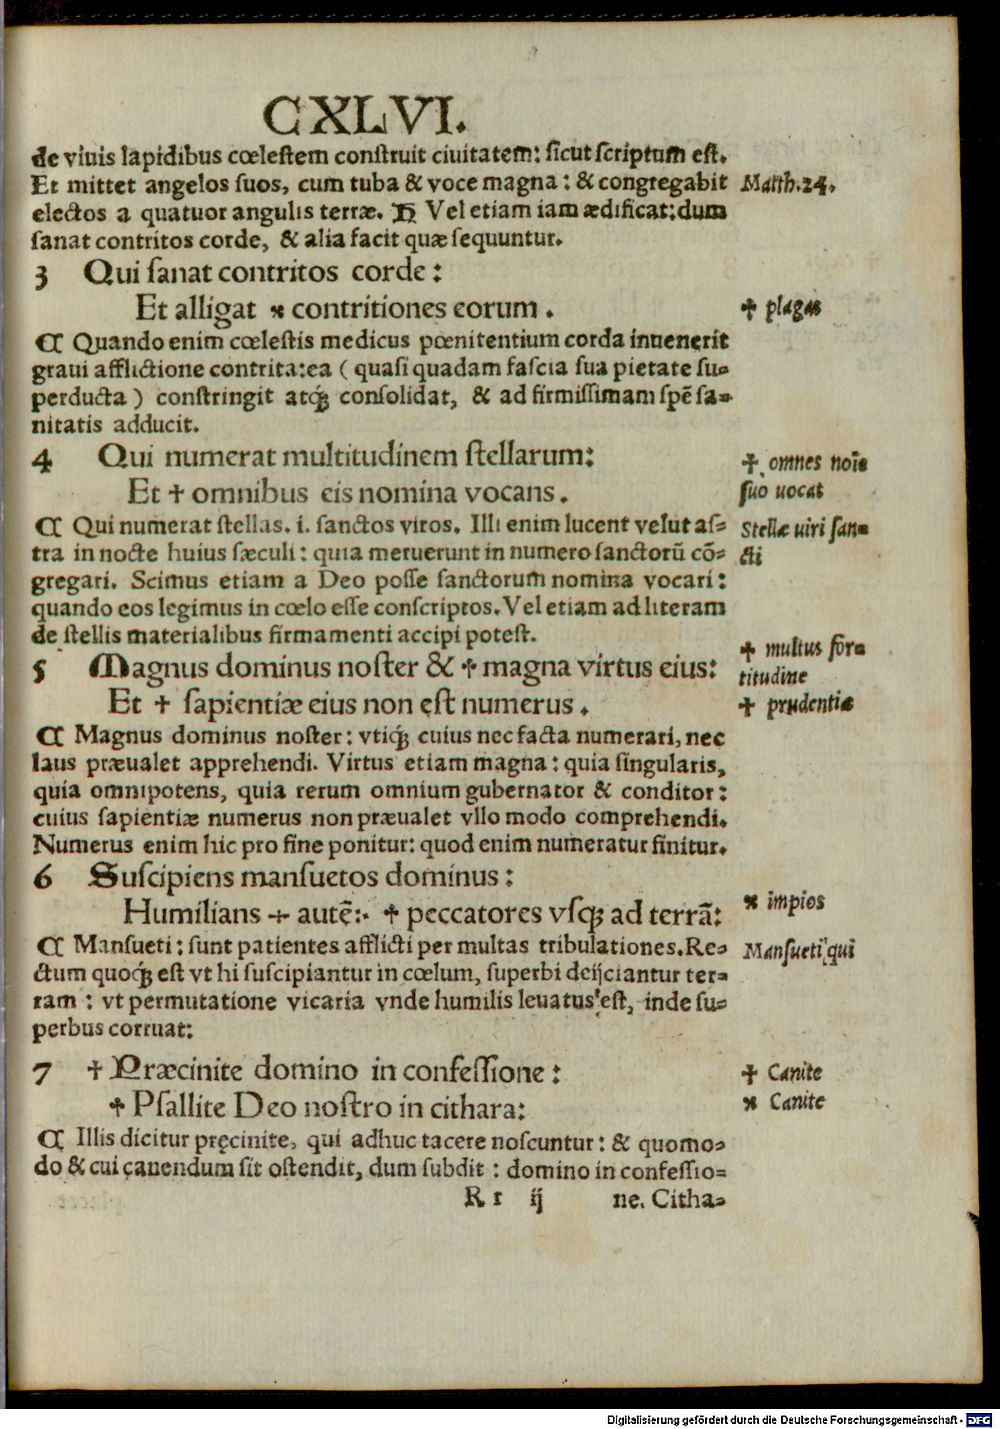 CXLVI.
de viuis lapidibus cœlestem construit ciuitatem: sicut scriptum est.
Et mittet angelos suos, cum tuba & voce magna: & congregabit
Matth.24.
electos a quatuor angulis terræ. Vel etiam iam ædificat: dum
sanat contritos corde, & alia facit quæ sequuntur.
3 Qui sanat contritos corde:
Et alligat ⁎ contritiones eorum.
✝ plagas
¶ Quando enim cœlestis medicus pœnitentium corda inuenerit
graui afflictione contrita: ea ( quasi quadam fascia sua pietate su-
perducta ) constringit atq; consolidat, & ad firmissimam spē sa-
nitatis adducit.
4 Qui numerat multitudinem stellarum:
✝ omnes noīe
Et ✝ omnibus eis nomina vocans.
suo uocat
¶ Qui numerat stellas. i. sanctos viros. Illi enim lucent velut as-
Stellæ uiri san-
tra in nocte huius sæculi: quia meruerunt in numero sanctorū cō-
cti
gregari. Scimus etiam a Deo posse sanctorum nomina vocari:
quando eos legimus in cœlo esse conscriptos. Vel etiam ad literam
de stellis materialibus firmamenti accipi potest.
✝ multus for-
5 Magnus dominus noster & ✝ magna virtus eius:
titudine
Et ✝ sapientiæ eius non ęst numerus.
✝ prudentiæ
¶ Magnus dominus noster: vtiq; cuius nec facta numerari, nec
laus præualet apprehendi. Virtus etiam magna: quia singularis,
quia omnipotens, quia rerum omnium gubernator & conditor:
cuius sapientiæ numerus non præualet vllo modo comprehendi.
Numerus enim hic pro fine ponitur: quod enim numeratur finitur.
6 Suscipiens mansuetos dominus:
⁎ impios
Humilians ÷ autē:· ✝ peccatores vsq; ad terrā:
¶ Mansueti: sunt patientes afflicti per multas tribulationes. Re-
Mansueti qui
ctum quoq; est vt hi suscipiantur in cœlum, superbi deijciantur ter-
ram: vt permutatione vicaria vnde humilis leuatus est, inde su-
perbus corruat:
7 ✝ Præcinite domino in confessione:
✝ Canite
✝ Psallite Deo nostro in cithara:
⁎ Canite
¶ Illis dicitur pręcinite, qui adhuc tacere noscuntur: & quomo-
do & cui canendum sit ostendit, dum subdit: domino in confessio-
R r ij ne. Citha-
Digitalisierung gefördert durch die Deutsche Forschungsgemeinschaft - DFG